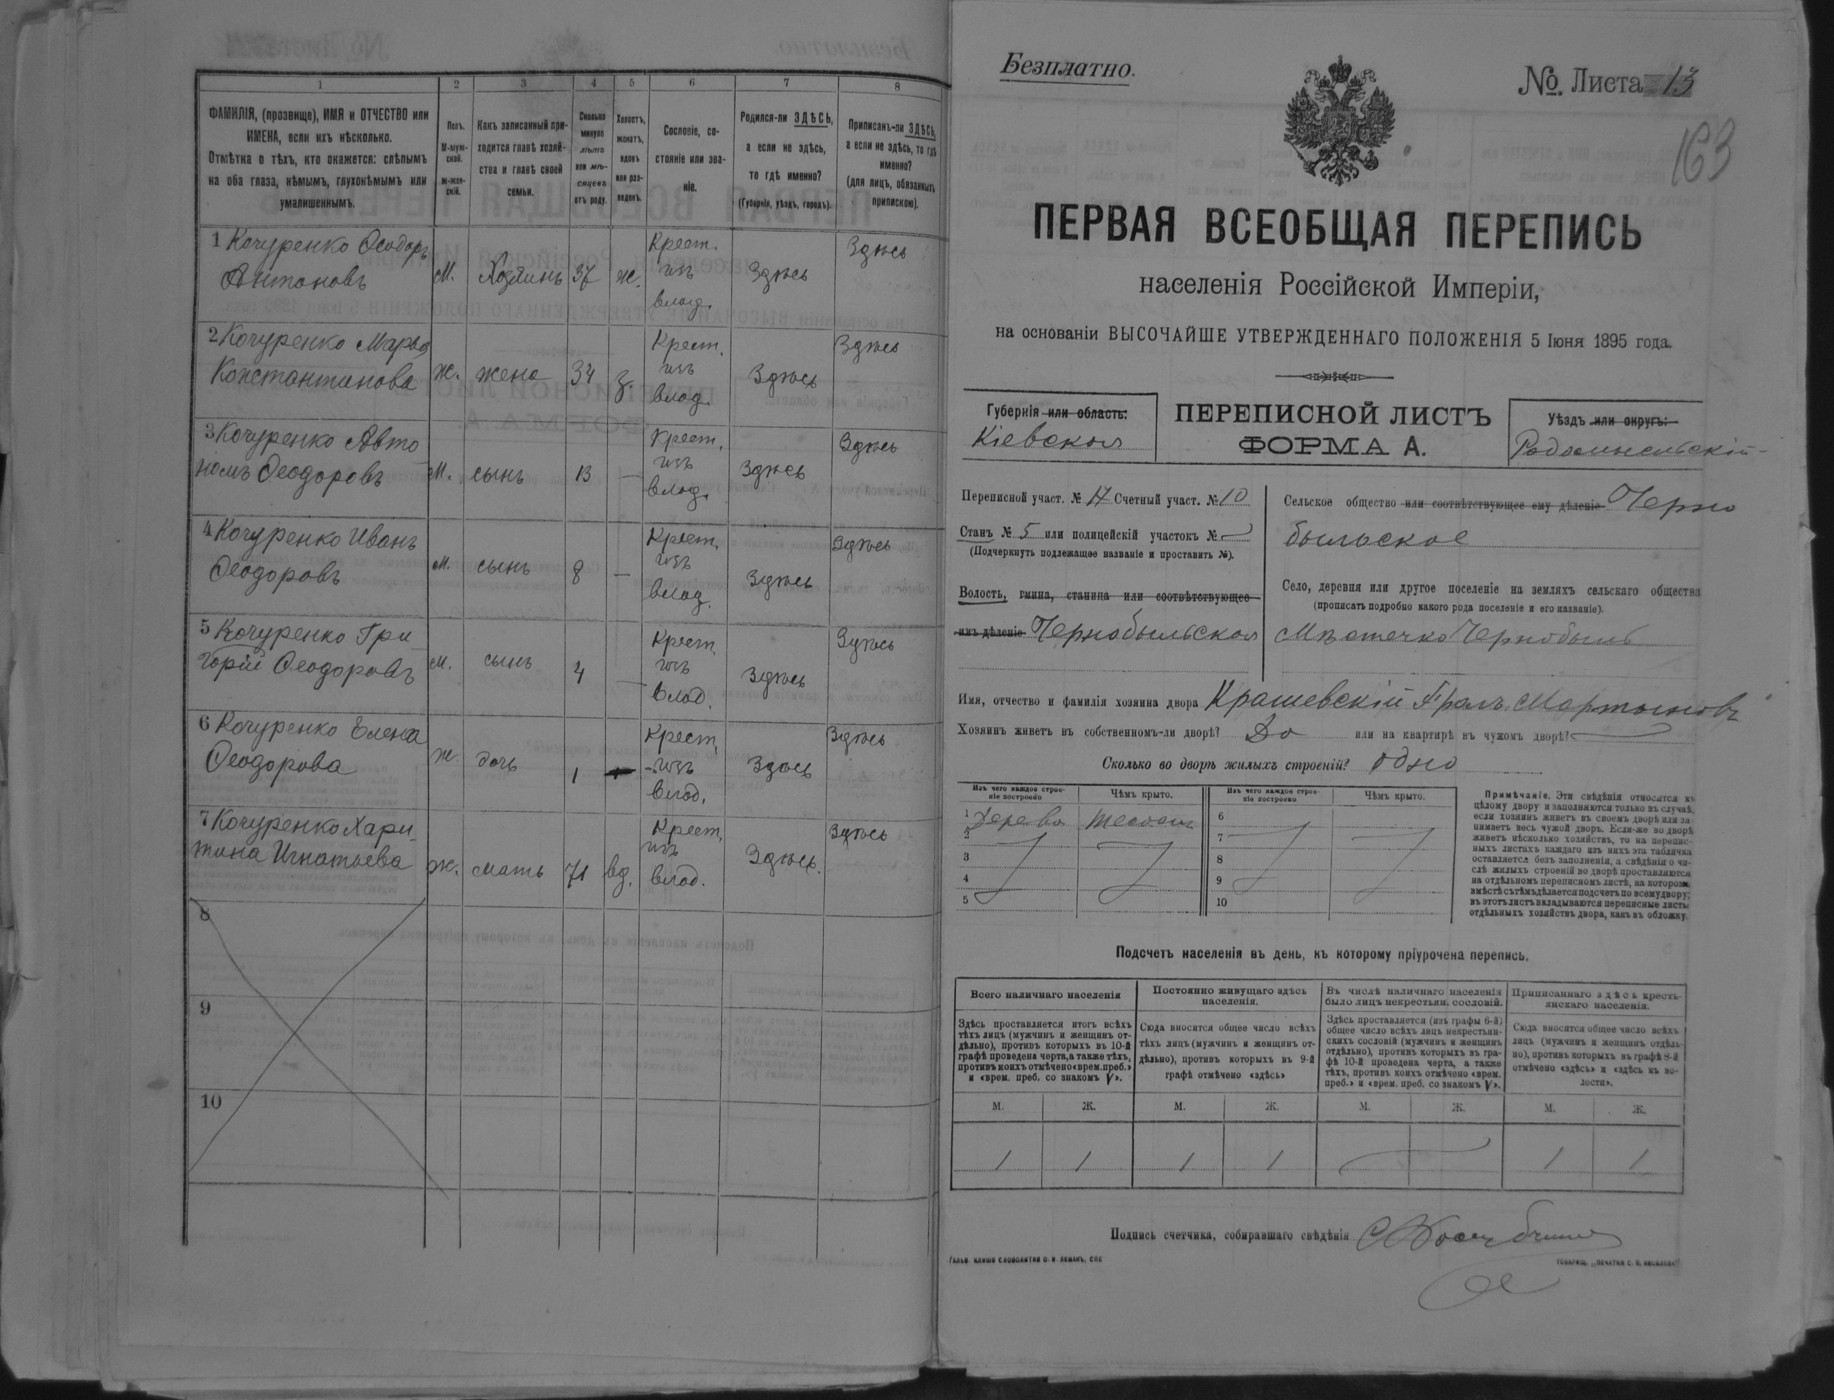 1
2
3
4
5
6
7
8
ФАМИЛІЯ, (прозвище), ИМЯ и ОТЧЕСТВО или
ИМЕНА, если ихъ нѣсколько.
Отмѣтка о тѣхъ, кто окажется: слѣпымъ
на оба глаза, нѣмымъ, глухонѣмымъ или
умалишеннымъ.
Полъ.
М-муж-
ской.
ж-жен-
скій.
Какъ записанный при-
ходится главѣ хозяй-
ства и главѣ своей
семьи.
Сколько
минуло
лѣтъ
или мѣ-
сяцевъ
отъ роду.
Холостъ,
женатъ,
вдовъ
или раз-
веденъ.
Сословіе, со-
стояніе или зва-
ніе.
Родился-ли ЗДѢСЬ,
а если не здѣсь,
то гдѣ именно?
(Губернія, уѣздъ, городъ).
Приписанъ-ли ЗДѢСЬ,
а если не здѣсь, то гдѣ
именно?
(для лицъ, обязанныхъ
припискою).
1 Кочуренко Ѳеодоръ
Антоновъ
М. Хозяинъ 37 ж.
Крест.
изъ
влад.
Здѣсь
Здѣсь
2 Кочуренко Марья
Константинова
Ж. жена 34 з.
Крест.
изъ
влад.
Здѣсь
Здѣсь
3 Кочуренко Авто
номъ Ѳеодоровъ
М. сынъ 13 —
Крест.
изъ
влад.
Здѣсь
Здѣсь
4 Кочуренко Иванъ
Ѳеодоровъ
М. сынъ 8 —
Крест.
изъ
влад.
Здѣсь
Здѣсь
5 Кочуренко Гри-
горій Ѳеодоровъ
М. сынъ 4 —
Крест.
изъ
влад.
Здѣсь
Здѣсь
6 Кочуренко Елена
Ѳеодорова
Ж. дочь 1
Крест.
изъ
влад.
Здѣсь
Здѣсь
7 Кочуренко Хари
тина Игнатьева
Ж. мать 71 вд.
Крест.
изъ
влад.
Здѣсь.
Здѣсь
8
9
10
Безплатно.
№. Листа 13
163
ПЕРВАЯ ВСЕОБЩАЯ ПЕРЕПИСЬ
населенія Россійской Имперіи,
на основаніи ВЫСОЧАЙШЕ УТВЕРЖДЕННАГО ПОЛОЖЕНІЯ 5 Іюня 1895 года.
Губернія или область:
Кіевская
ПЕРЕПИСНОЙ ЛИСТЪ
ФОРМА А.
Уѣздъ или округъ:
Радомысльскій
Переписной участ. № 17 Счетный участ. № 10
Станъ № 5 или полицейскій участокъ №
(Подчеркнуть подлежащее названіе и проставить №).
Волость, гмина, станица или соотвѣтствующее
имъ дѣленіе Чернобыльская
Сельское общество или соотвѣтствующее ему дѣленіе Черно
быльское
Село, деревня или другое поселеніе на земляхъ сельскаго общества
(прописать подробно какого рода поселеніе и его названіе).
Мѣстечко Чернобыль
Имя, отчество и фамилія хозяина двора Крашевскій Мартыновъ
Хозяинъ живетъ въ собственномъ-ли дворѣ? Да или на квартирѣ въ чужомъ дворѣ?
Сколько во дворѣ жилыхъ строеній? одно
Изъ чего каждое строе-
ніе построено
Чѣмъ крыто.
Изъ чего каждое строе-
ніе построено
Чѣмъ крыто.
1 дерева тесомъ
2
3
4
5
6
7
8
9
10
Примѣчаніе. Эти свѣдѣнія относятся къ
цѣлому двору и заполняются только въ случаѣ,
если хозяинъ живетъ въ своемъ дворѣ или за-
нимаетъ весь чужой дворъ. Если-же во дворѣ
живетъ нѣсколько хозяйствъ, то на перепис-
ныхъ листахъ каждаго изъ нихъ эта табличка
оставляется безъ заполненія, а свѣдѣнія о чи-
слѣ жилыхъ строеній во дворѣ проставляются
на отдѣльномъ переписномъ листѣ, на которомъ
вмѣстѣ съ тѣмъ дѣлается подсчетъ по всему двору;
въ этотъ листъ вкладываются переписные листы
отдѣльныхъ хозяйствъ двора, какъ въ обложку.
Подсчетъ населенія въ день, къ которому пріурочена перепись.
Всего наличнаго населенія
Здѣсь проставляется итогъ всѣхъ
тѣхъ лицъ (мужчинъ и женщинъ от-
дѣльно), противъ которыхъ въ 10-й
графѣ проведена черта, а также тѣхъ,
противъ коихъ отмѣчено «врем. преб.»
и «врем. преб. со знакомъ V».
Постоянно живущаго здѣсь
населенія.
Сюда вносится общее число всѣхъ
тѣхъ лицъ (мужчинъ и женщинъ от-
дѣльно), противъ которыхъ въ 9-й
графѣ отмѣчено «здѣсь»
Въ числѣ наличнаго населенія
было лицъ некрестьян. сословій.
Здѣсь проставляется (изъ графы 6-й)
общее число всѣхъ лицъ некрестьян-
скихъ сословій (мужчинъ и женщинъ
отдѣльно), противъ которыхъ въ гра-
фѣ 10-й проведена черта, а также
тѣхъ, противъ коихъ отмѣчено «врем.
преб.» и «врем. преб. со знакомъ V».
Приписаннаго здѣсь кресть-
янскаго населенія.
Сюда вносится общее число всѣхъ
лицъ (мужчинъ и женщинъ отдѣль-
но), противъ которыхъ въ графѣ 8-й
отмѣчено «здѣсь» и «здѣсь къ во-
лости».
М. Ж. М. Ж. М. Ж. М. Ж.
1 1 1 1 — 1 1
Подпись счетчика, собиравшаго свѣдѣнія